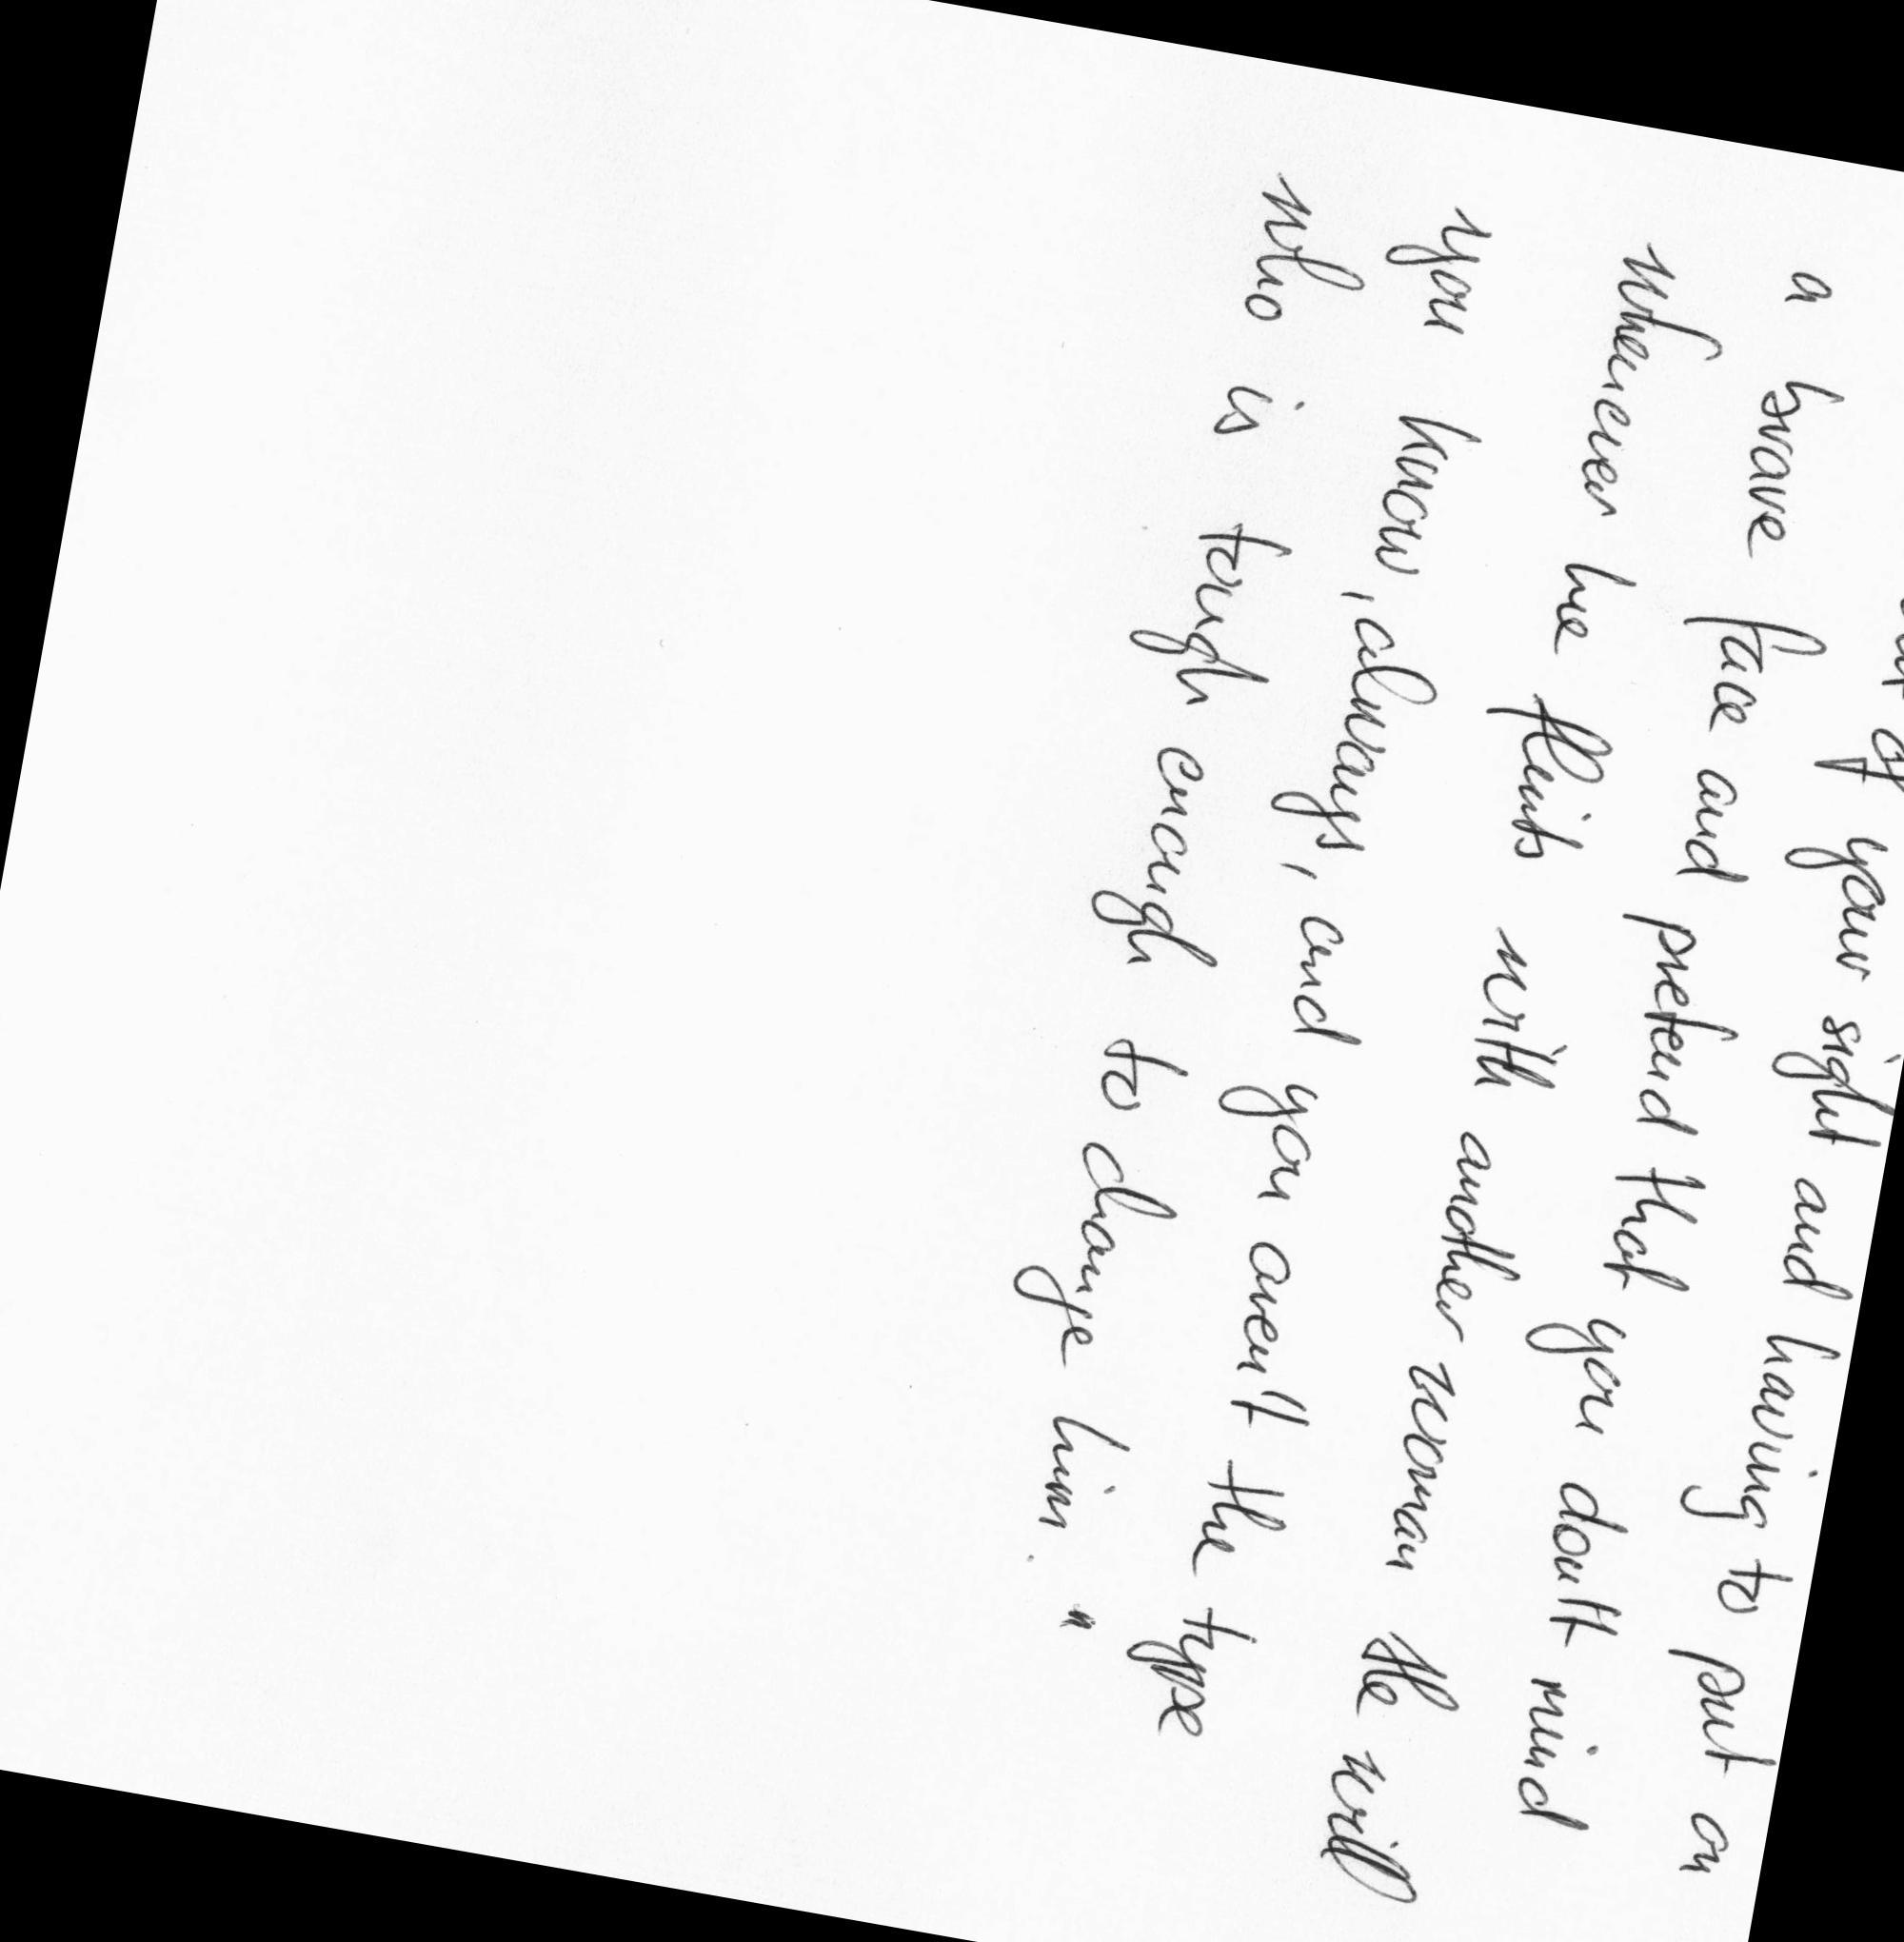 of your sight and having to put on
a brave face and pretend that you don't mind
whenever he flirts with another woman He will
you know, always, and you aren't the type
who is tough enough to change him. "